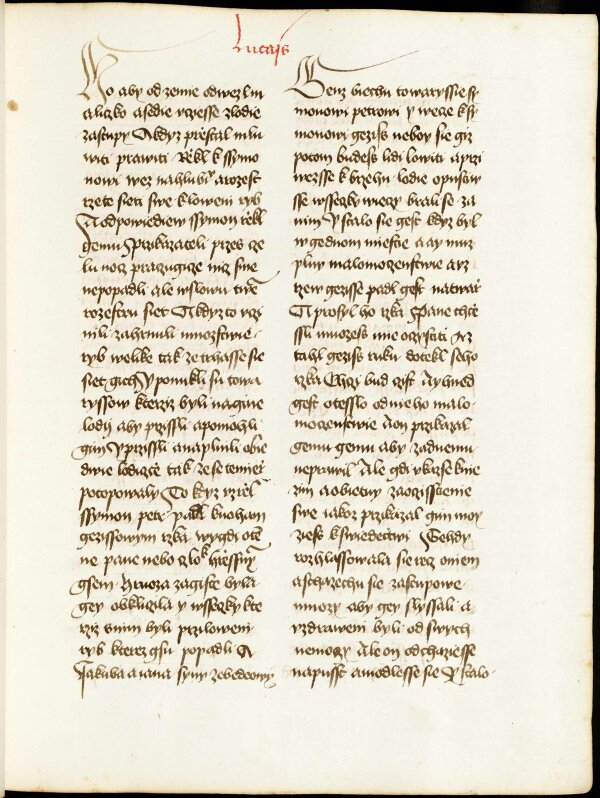 Lucass
Ho aby od zemie odwezl m
aliczko a sedie vcziesse z lodie
zastupy A kdyz przestal mlu
witi prawiti Rzekl k ssymo
nowi wez na hlubi a rozest
rzete sieti swe k loweni ryb
A odpowiediew ssymon rzekl
gemu Przikazateli przes ce
lu nocz praczugicze nicz sme
nepopadli ale w slowu twe
rozestru siet A kdyz to vczi
nili zahrnuli mnozstwie
ryb welike tak ze trhasse se
siet gich Y ponukli su towa
ryssow kterziz byli na gine
lodij aby przissli a pomohli
gim Y przissli a naplnili obie
dwie lodiczce tak ze se temierz
potopowaly To kdyz vzrziel
ssymon petr padl k noham
gezissowym rzka wygdi ote
ne pane nebo czlok hrziessny
gsem Hruoza zagiste byla
gey obkliczila y wsseczky kte
rziz s nim byli przi loweni
ryb kterez gsu popadli A
Jakuba a iana syny zebedeowy
Genz biechu towaryssie sy
monowi petrowi y wece k sy
monowi geziss neboy sie giz
potom budess lidi lowiti a przi
wezsse k brzehu lodie opustiw
sse wsseczky wieczy brali se za
nim Y stalo sie gest kdyz byl
w gednom miestie a ay muz
plny malomoczenstwie a vz
rzew gezisse padl gest na twarz
A prosyl ho rzka Pane chce
ssli muozess mne oczistiti A vz
tahl geziss ruku dotekl se ho
rzka Chczi bud czist A yhned
gest otesslo od nieho malo
moczenstwie A on przikazal
gemu gemu aby zadnemu
neprawil Ale gdi vkaz se knie
zim a obietuy za oczisstienie
swe iakoz przikazal gim moy
ziess k swiedectwi Tehdy
rozhlassowala sie rzecz o niem
a schazechu sie zastupowe
mnozy aby gey slyssali a
vzdraweni byli od swych
nemoczy Ale on odchaziesse
na pusst a modlesse sie Y stalo